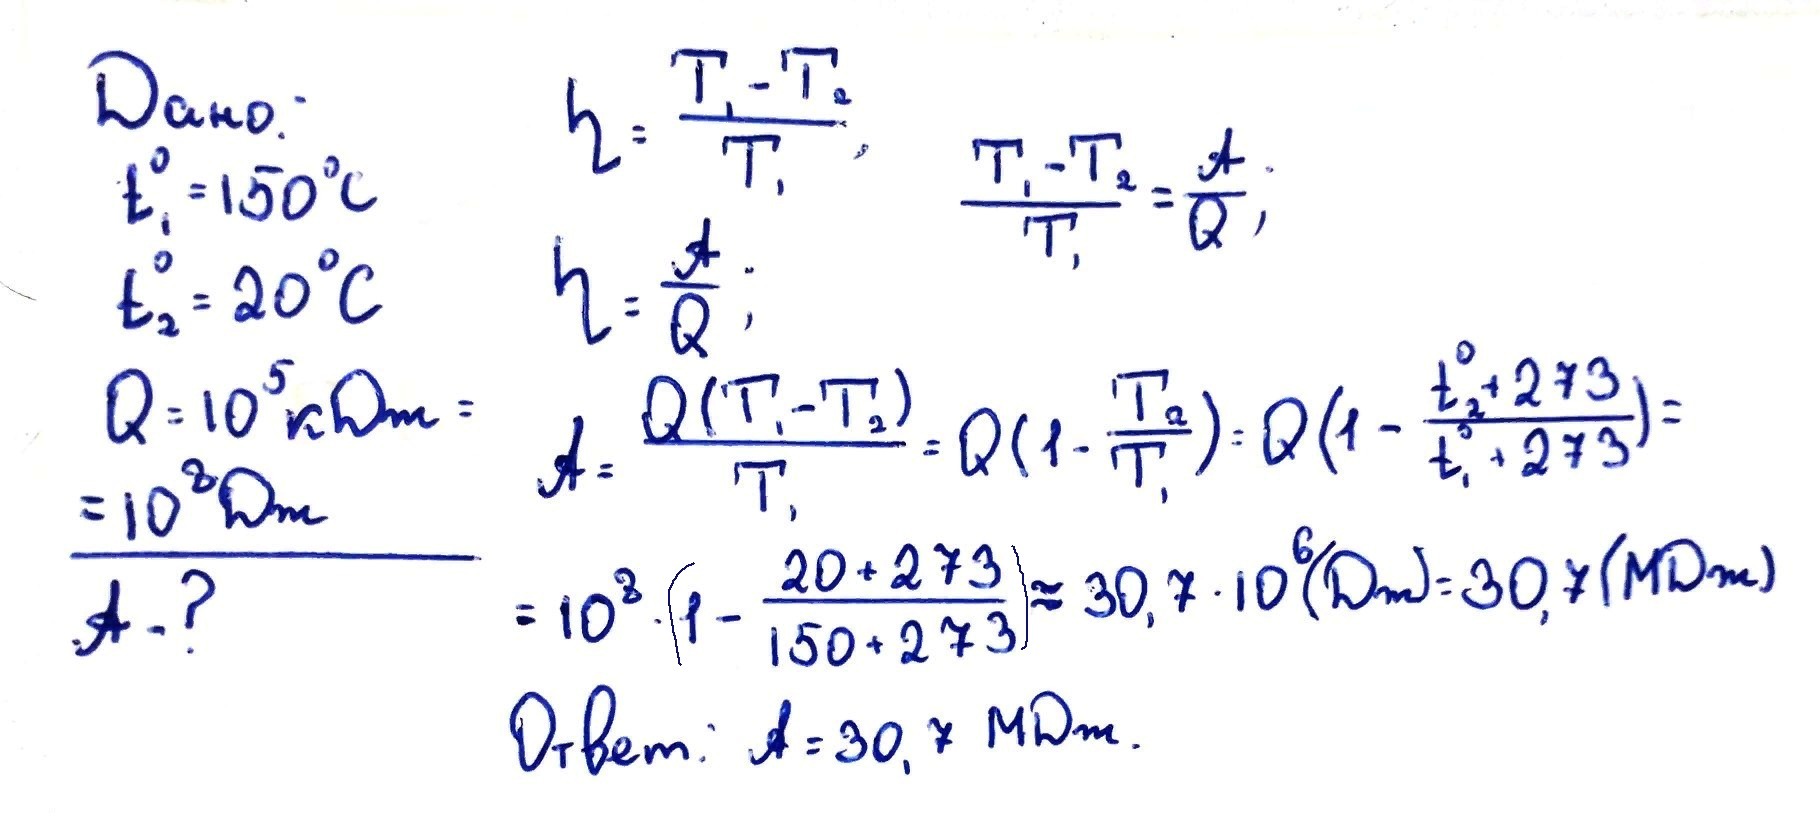 Дано:
t₁° = 150°C
t₂° = 20°C
Q = 10⁵ кДж =
= 10⁸ Дж
A - ?
η = (T₁ - T₂)/T₁,
η = A/Q;
(T₁ - T₂)/T₁ = A/Q;
A = Q(T₁ - T₂)/T₁ = Q(1 - T₂/T₁) = Q(1 - (t₂° + 273)/(t₁° + 273)) =
= 10⁸ · (1 - (20 + 273)/(150 + 273)) ≈ 30,7 · 10⁶ (Дж) = 30,7 (МДж)
Ответ: A = 30,7 МДж.